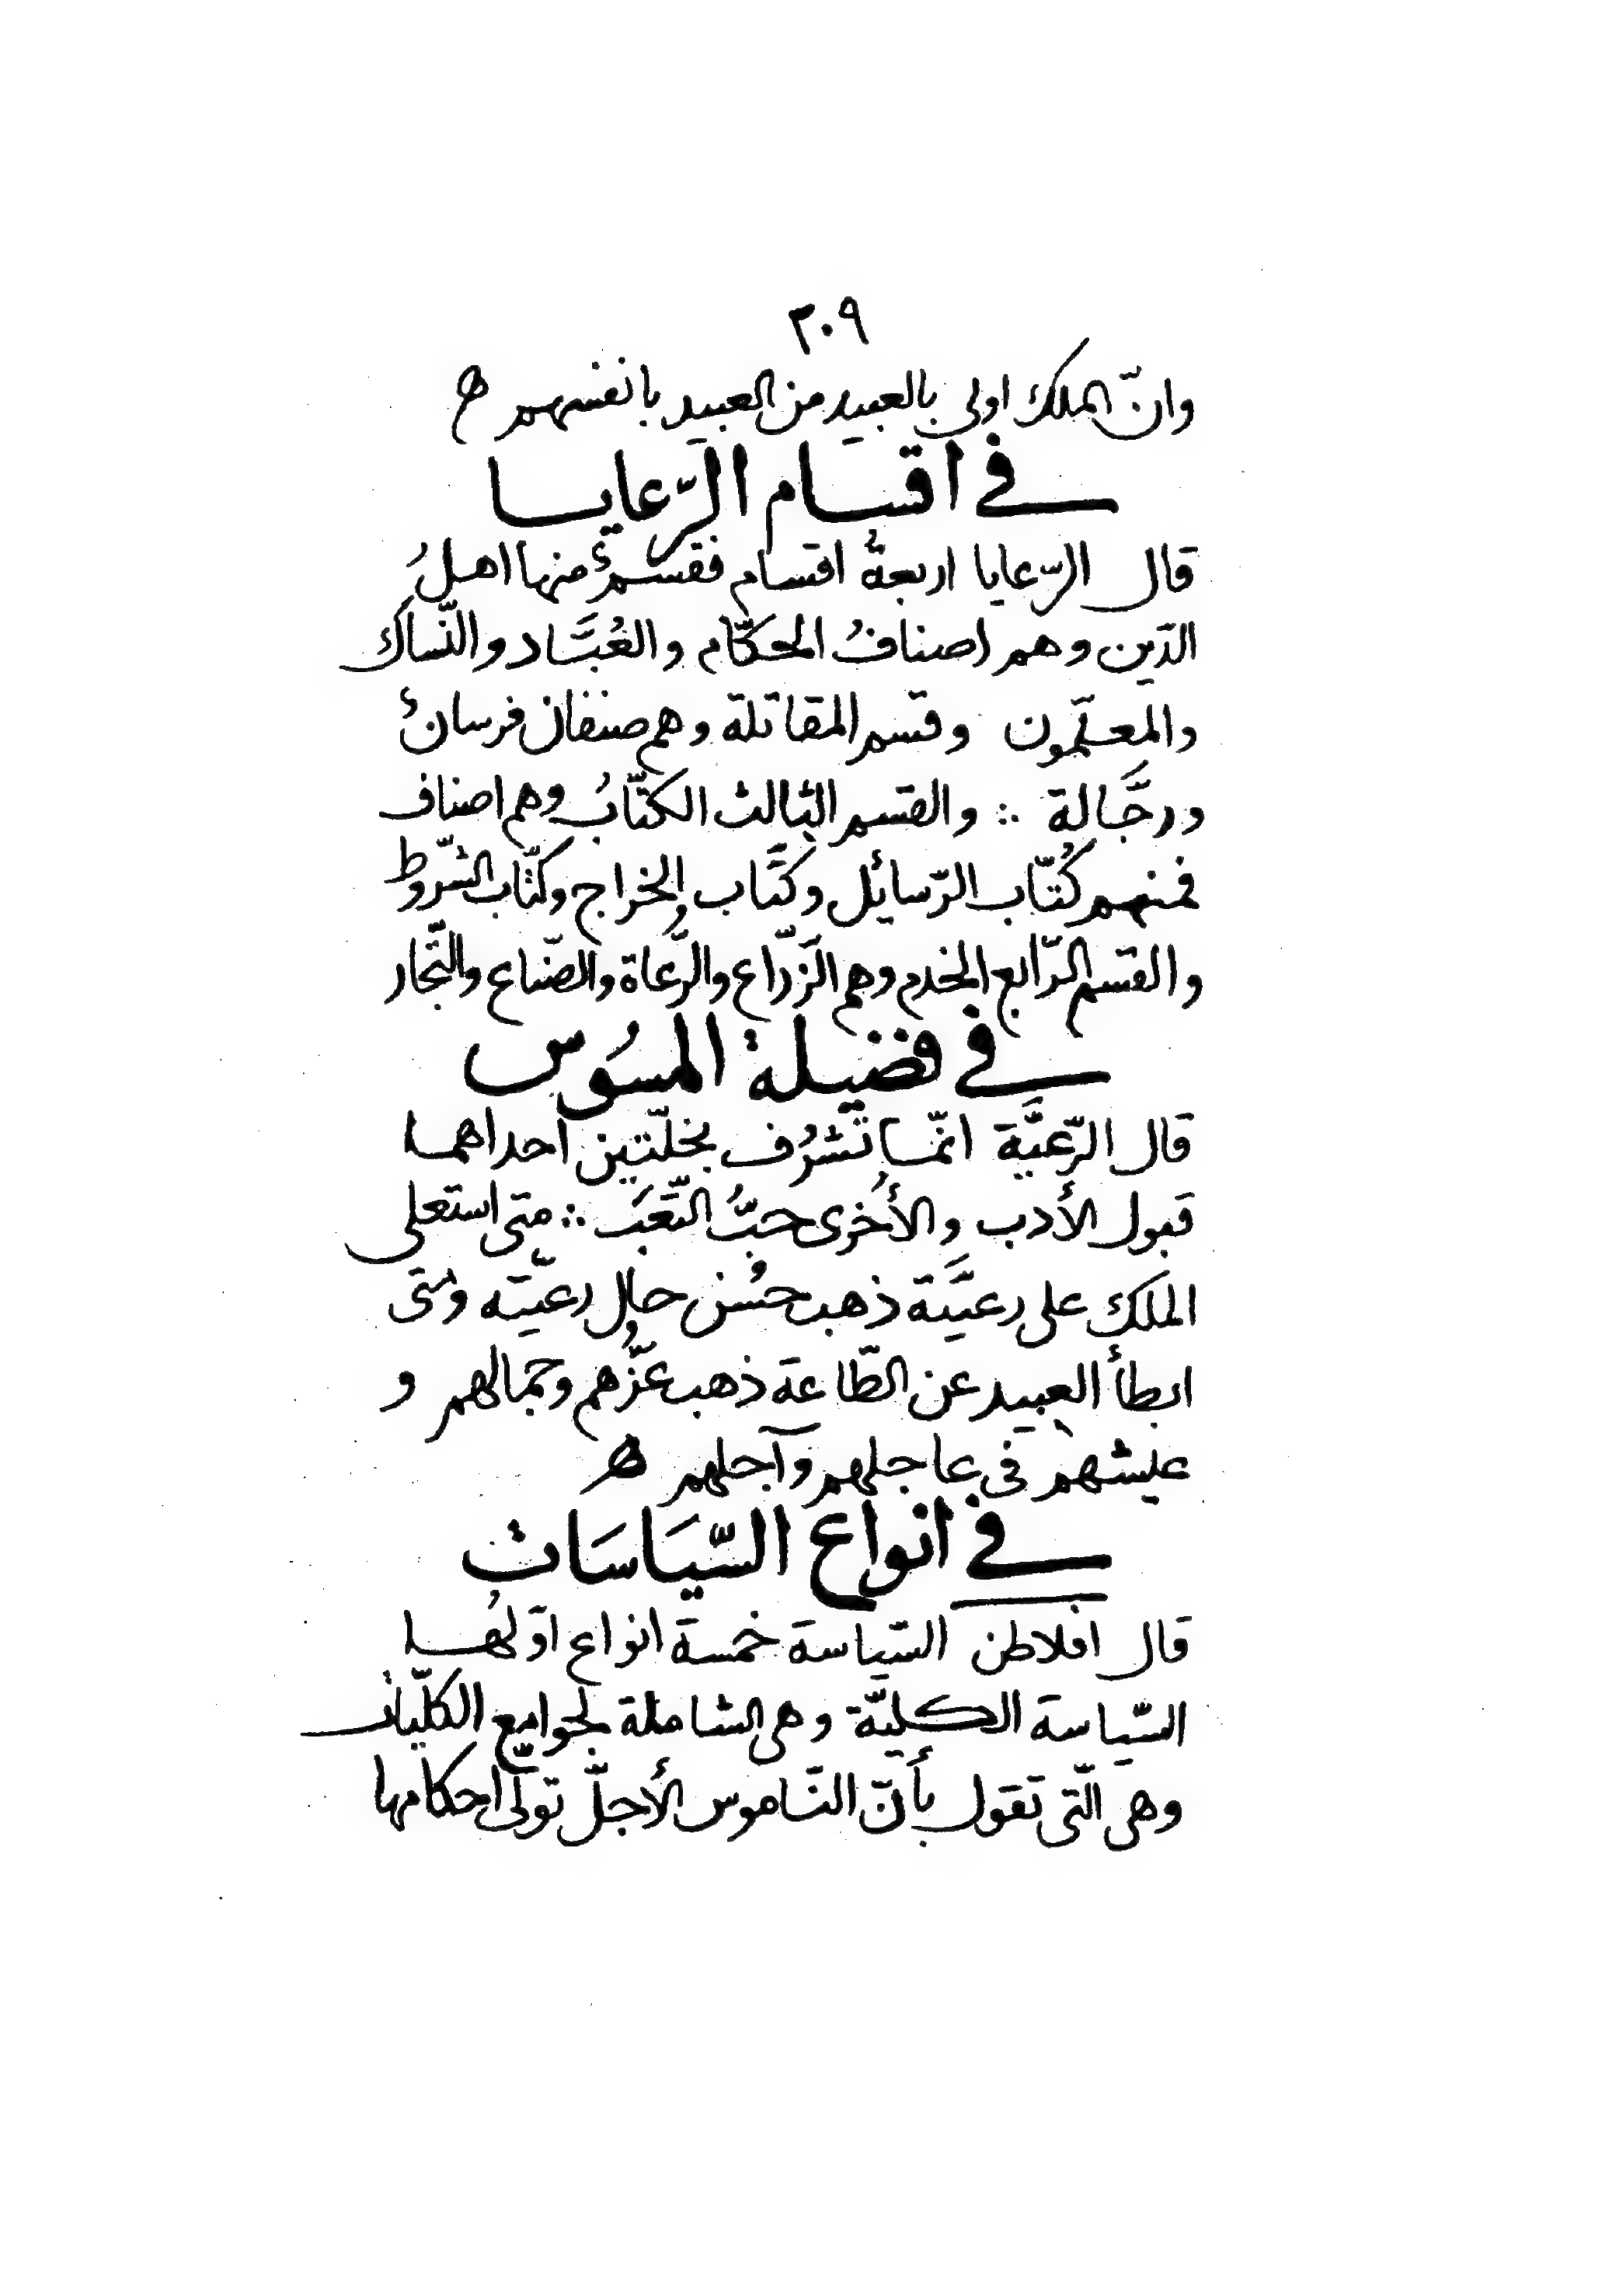 ٢٠٩
وانّ الملك اولى بالعبيد من العبيد بانفسهم ه
في اقسام الرّعايا
قال الرّعايا اربعةُ اقسام فقسمٌ منها اهلُ
الدّين وهم اصنافُ الحكّام والعُبَّاد والنّساك
والمعلّمون وقسم المقاتلة وهم صنفان فرسانٌ
ورجَّالة ∴ والقسم الثالث الكتّابُ وهم اصناف
فمنهم كُتّاب الرّسائل وكتَّاب الخراج وكتّاب الشّروط
والقسم الرّابع الخدم وهم الزَّرّاع والرّعاة والصّناع والتّجار
في فضيلة المسُوس
قال الرّعيَّة انّما تشرُف بخلّتين احداهما
قبول الأدب والأُخرى حبُّ التّعَب ∴ متى استعلى
الملك على رعيَّته ذهب حُسْن حال رعيّته ومتى
ابطأ العبيد عن الطّاعة ذهب عزُّهم وجمالهم و
عيشهم في عاجلهم وآجلهم ه
في انواع السّيَاسَات
قال افلاطن السّياسة خمسة انواع اوّلهُا
السّياسة الكليّة وهى الشاملة لجوامع الكلّيات
وهى الّتى تقول بأنّ النّاموس الأجلّ تولّى احكامها